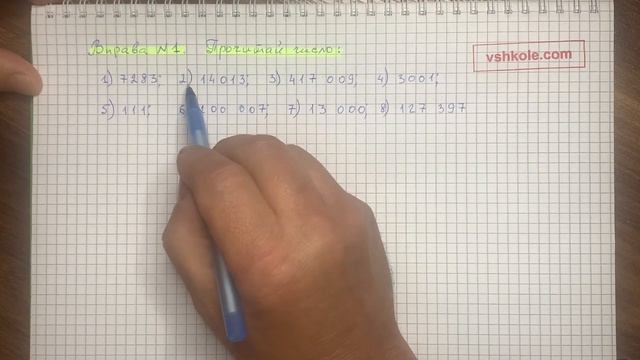 Вправа №1. Прочитай число:
vshkole.com
1) 7283; 2) 14013; 3) 417 009; 4) 3001;
5) 111; 6) 100 007; 7) 13 000; 8) 127 397